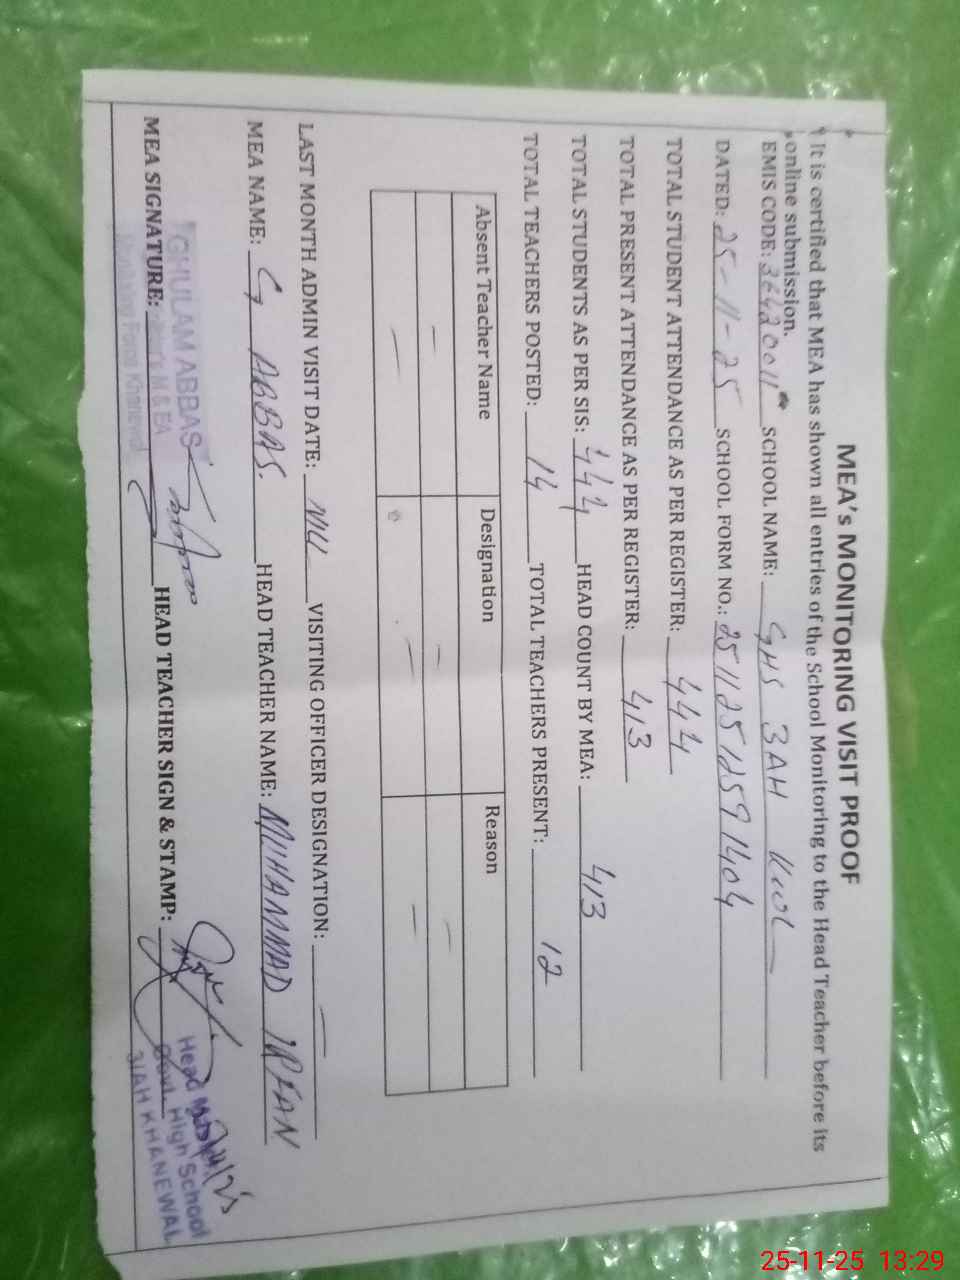 MEA's MONITORING VISIT PROOF
It is certified that MEA has shown all entries of the School Monitoring to the Head Teacher before its
online submission.
EMIS CODE: 36420011 SCHOOL NAME: GHS 3AH Kwl
DATED: 25-11-25 SCHOOL FORM NO.: 25112512591404
TOTAL STUDENT ATTENDANCE AS PER REGISTER: 444
TOTAL PRESENT ATTENDANCE AS PER REGISTER: 413
TOTAL STUDENTS AS PER SIS: 444 HEAD COUNT BY MEA: 413
TOTAL TEACHERS POSTED: 14 TOTAL TEACHERS PRESENT: 12
Absent Teacher Name Designation Reason
— — —
— — —
LAST MONTH ADMIN VISIT DATE: Nil VISITING OFFICER DESIGNATION: —
MEA NAME: G ABBAS. HEAD TEACHER NAME: MUHAMMAD IRFAN
GHULAM ABBAS
MEA SIGNATURE: HEAD TEACHER SIGN & STAMP:
M & EA
Monitoring Force Khanewal
Head
Govt. High School
3/AH KHANEWAL
25-11-25 13:29